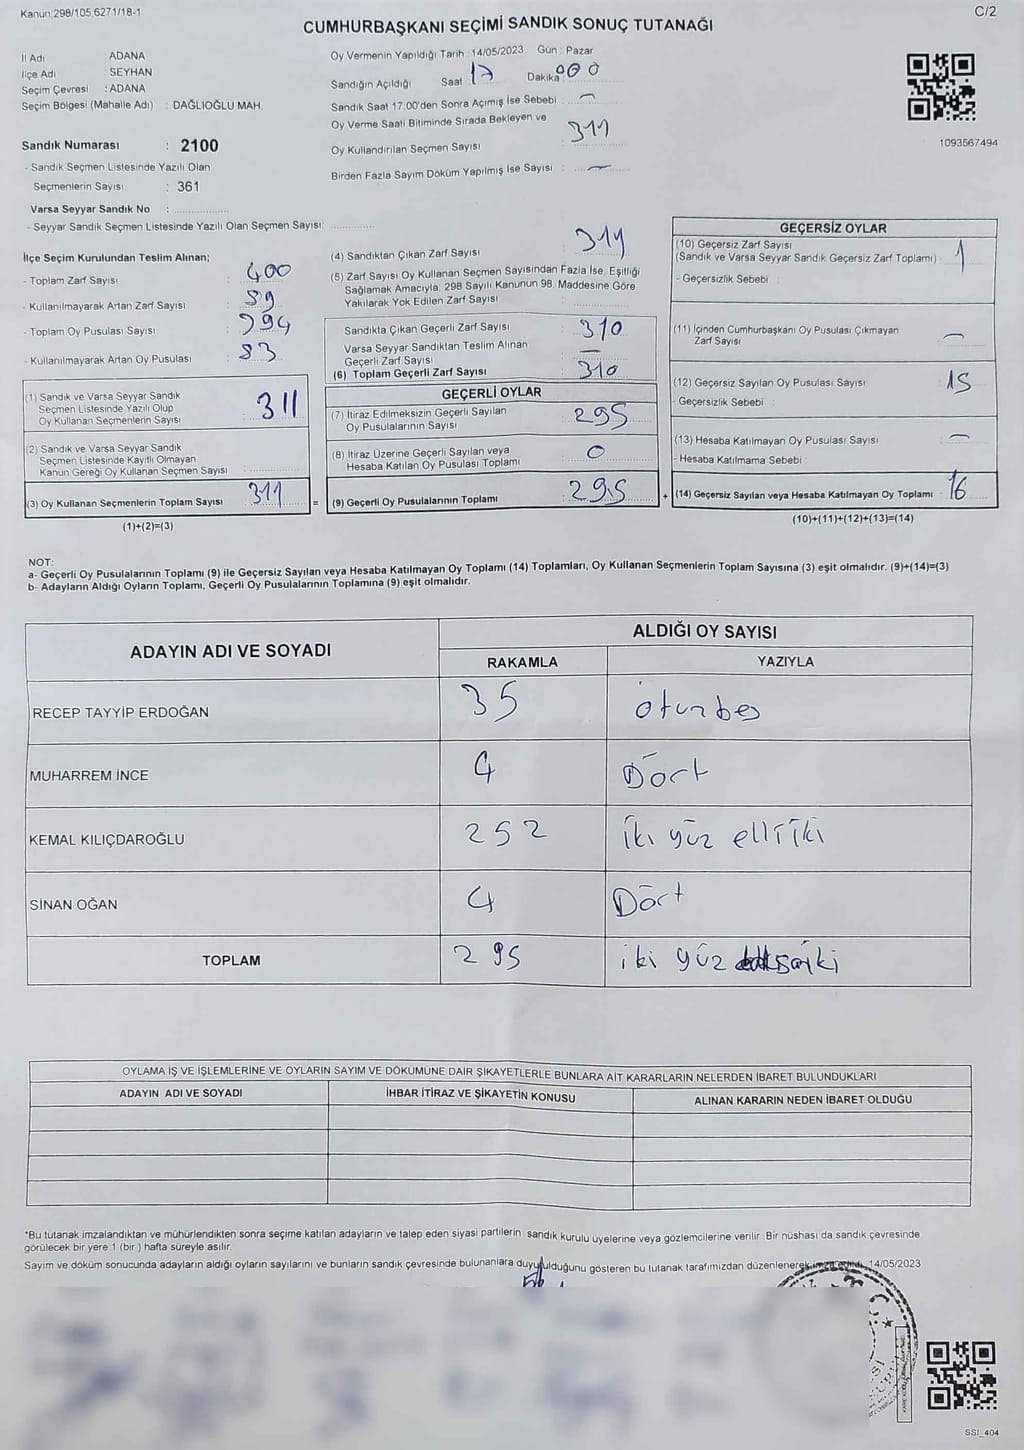 Kanun 298/105,6271/18-1
C/2
CUMHURBAŞKANI SEÇİMİ SANDIK SONUÇ TUTANAĞI
İl Adı : ADANA
İlçe Adı : SEYHAN
Seçim Çevresi : ADANA
Seçim Bölgesi (Mahalle Adı) : DAĞLIOĞLU MAH.
Oy Vermenin Yapıldığı Tarih : 14/05/2023 Gün : Pazar
Sandığın Açıldığı Saat 17 Dakika 000
Sandık Saat 17:00'den Sonra Açımış İse Sebebi : —
Oy Verme Saati Bitiminde Sırada Bekleyen ve
Oy Kullandırılan Seçmen Sayısı : 311
Birden Fazla Sayım Döküm Yapılmış İse Sayısı : —
1093567494
Sandık Numarası : 2100
- Sandık Seçmen Listesinde Yazılı Olan
Seçmenlerin Sayısı : 361
Varsa Seyyar Sandık No :
- Seyyar Sandık Seçmen Listesinde Yazılı Olan Seçmen Sayısı:
İlçe Seçim Kurulundan Teslim Alınan;
- Toplam Zarf Sayısı : 400
- Kullanılmayarak Artan Zarf Sayısı : 89
- Toplam Oy Pusulası Sayısı : 394
- Kullanılmayarak Artan Oy Pusulası : 83
(1) Sandık ve Varsa Seyyar Sandık
Seçmen Listesinde Yazılı Olup
Oy Kullanan Seçmenlerin Sayısı 311
(2) Sandık ve Varsa Seyyar Sandık
Seçmen Listesinde Kayıtlı Olmayan
Kanun Gereği Oy Kullanan Seçmen Sayısı :
(3) Oy Kullanan Seçmenlerin Toplam Sayısı : 311
(1)+(2)=(3)
=
(4) Sandıktan Çıkan Zarf Sayısı : 311
(5) Zarf Sayısı Oy Kullanan Seçmen Sayısından Fazla İse, Eşitliği
Sağlamak Amacıyla, 298 Sayılı Kanunun 98. Maddesine Göre
Yakılarak Yok Edilen Zarf Sayısı :
Sandıkta Çıkan Geçerli Zarf Sayısı : 310
Varsa Seyyar Sandıktan Teslim Alınan
Geçerli Zarf Sayısı : —
(6) Toplam Geçerli Zarf Sayısı : 310
GEÇERLİ OYLAR
(7) İtiraz Edilmeksizin Geçerli Sayılan
Oy Pusulalarının Sayısı : 295
(8) İtiraz Üzerine Geçerli Sayılan veya
Hesaba Katılan Oy Pusulası Toplamı : 0
(9) Geçerli Oy Pusulalarının Toplamı : 295
+
GEÇERSİZ OYLAR
(10) Geçersiz Zarf Sayısı
(Sandık ve Varsa Seyyar Sandık Geçersiz Zarf Toplamı) : 1
- Geçersizlik Sebebi :
(11) İçinden Cumhurbaşkanı Oy Pusulası Çıkmayan
Zarf Sayısı : —
(12) Geçersiz Sayılan Oy Pusulası Sayısı : 15
- Geçersizlik Sebebi :
(13) Hesaba Katılmayan Oy Pusulası Sayısı : —
- Hesaba Katılmama Sebebi :
(14) Geçersiz Sayılan veya Hesaba Katılmayan Oy Toplamı : 16
(10)+(11)+(12)+(13)=(14)
NOT:
a- Geçerli Oy Pusulalarının Toplamı (9) ile Geçersiz Sayılan veya Hesaba Katılmayan Oy Toplamı (14) Toplamları, Oy Kullanan Seçmenlerin Toplam Sayısına (3) eşit olmalıdır. (9)+(14)=(3)
b- Adayların Aldığı Oyların Toplamı, Geçerli Oy Pusulalarının Toplamına (9) eşit olmalıdır.
ADAYIN ADI VE SOYADI
ALDIĞI OY SAYISI
RAKAMLA
YAZIYLA
RECEP TAYYİP ERDOĞAN 35 oturbeş
MUHARREM İNCE 4 Dört
KEMAL KILIÇDAROĞLU 252 iki yüz elli iki
SİNAN OĞAN 4 Dört
TOPLAM 295 iki yüz
OYLAMA İŞ VE İŞLEMLERİNE VE OYLARIN SAYIM VE DÖKÜMÜNE DAİR ŞİKAYETLERLE BUNLARA AİT KARARLARIN NELERDEN İBARET BULUNDUKLARI
ADAYIN ADI VE SOYADI
İHBAR İTİRAZ VE ŞİKAYETİN KONUSU
ALINAN KARARIN NEDEN İBARET OLDUĞU
*Bu tutanak imzalandıktan ve mühürlendikten sonra seçime katılan adayların ve talep eden siyasi partilerin sandık kurulu üyelerine veya gözlemcilerine verilir. Bir nüshası da sandık çevresinde
görülecek bir yere 1 (bir ) hafta süreyle asılır.
Sayım ve döküm sonucunda adayların aldığı oyların sayılarını ve bunların sandık çevresinde bulunanlara duyurulduğunu gösteren bu tutanak tarafımızdan düzenlenerek imza edildi. 14/05/2023
SSI_404